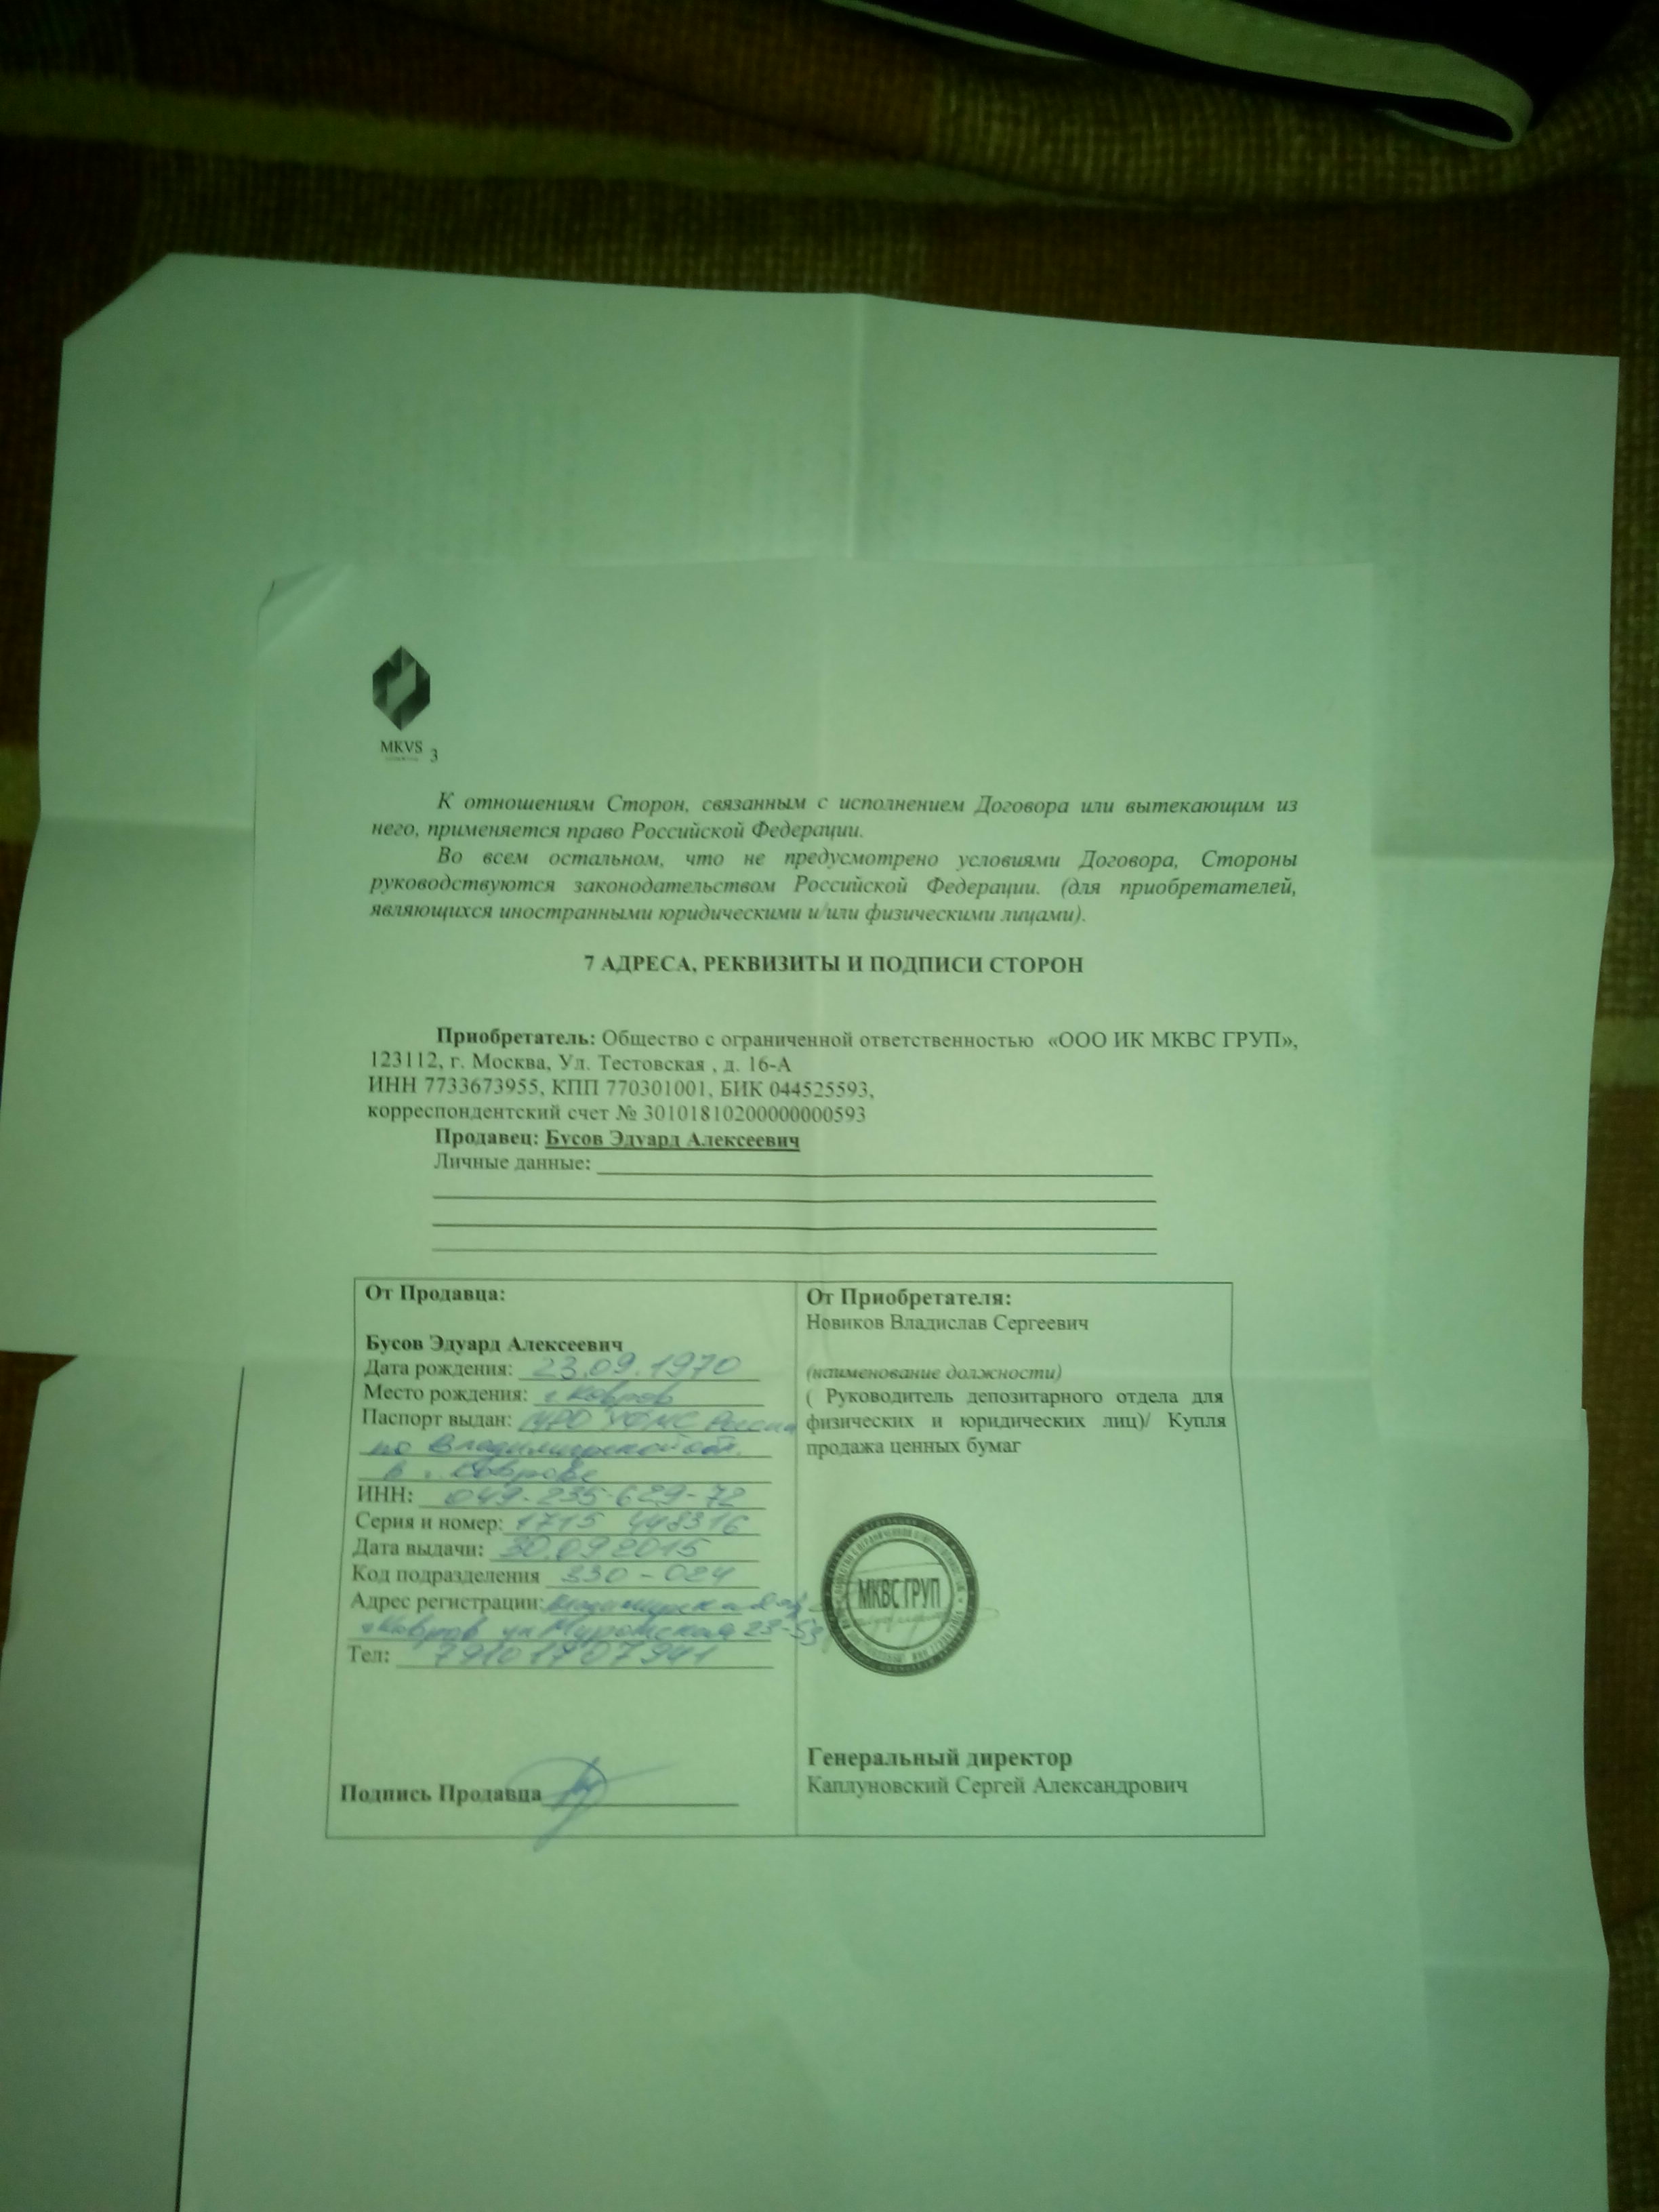 MKVS 3
К отношениям Сторон, связанным с исполнением Договора или вытекающим из
него, применяется право Российской Федерации.
Во всем остальном, что не предусмотрено условиями Договора, Стороны
руководствуются законодательством Российской Федерации. (для приобретателей,
являющихся иностранными юридическими и/или физическими лицами).
7 АДРЕСА, РЕКВИЗИТЫ И ПОДПИСИ СТОРОН
Приобретатель: Общество с ограниченной ответственностью «ООО ИК МКВС ГРУП»,
123112, г. Москва, Ул. Тестовская , д. 16-А
ИНН 7733673955, КПП 770301001, БИК 044525593,
корреспондентский счет № 30101810200000000593
Продавец: Бусов Эдуард Алексеевич
Личные данные:
От Продавца:
Бусов Эдуард Алексеевич
Дата рождения: 23.09.1970
Место рождения: г Ковров
Паспорт выдан: МРО УФМС России
по Владимирской обл.
в г. Коврове
ИНН: 049-235-629-72
Серия и номер: 1715 448316
Дата выдачи: 30.09.2015
Код подразделения 330-024
Адрес регистрации:
г Ковров ул Муромская 23-53
Тел: 79101707941
Подпись Продавца
От Приобретателя:
Новиков Владислав Сергеевич
(наименование должности)
( Руководитель депозитарного отдела для
физических и юридических лиц)/ Купля
продажа ценных бумаг
МКВС ГРУП
Генеральный директор
Каплуновский Сергей Александрович